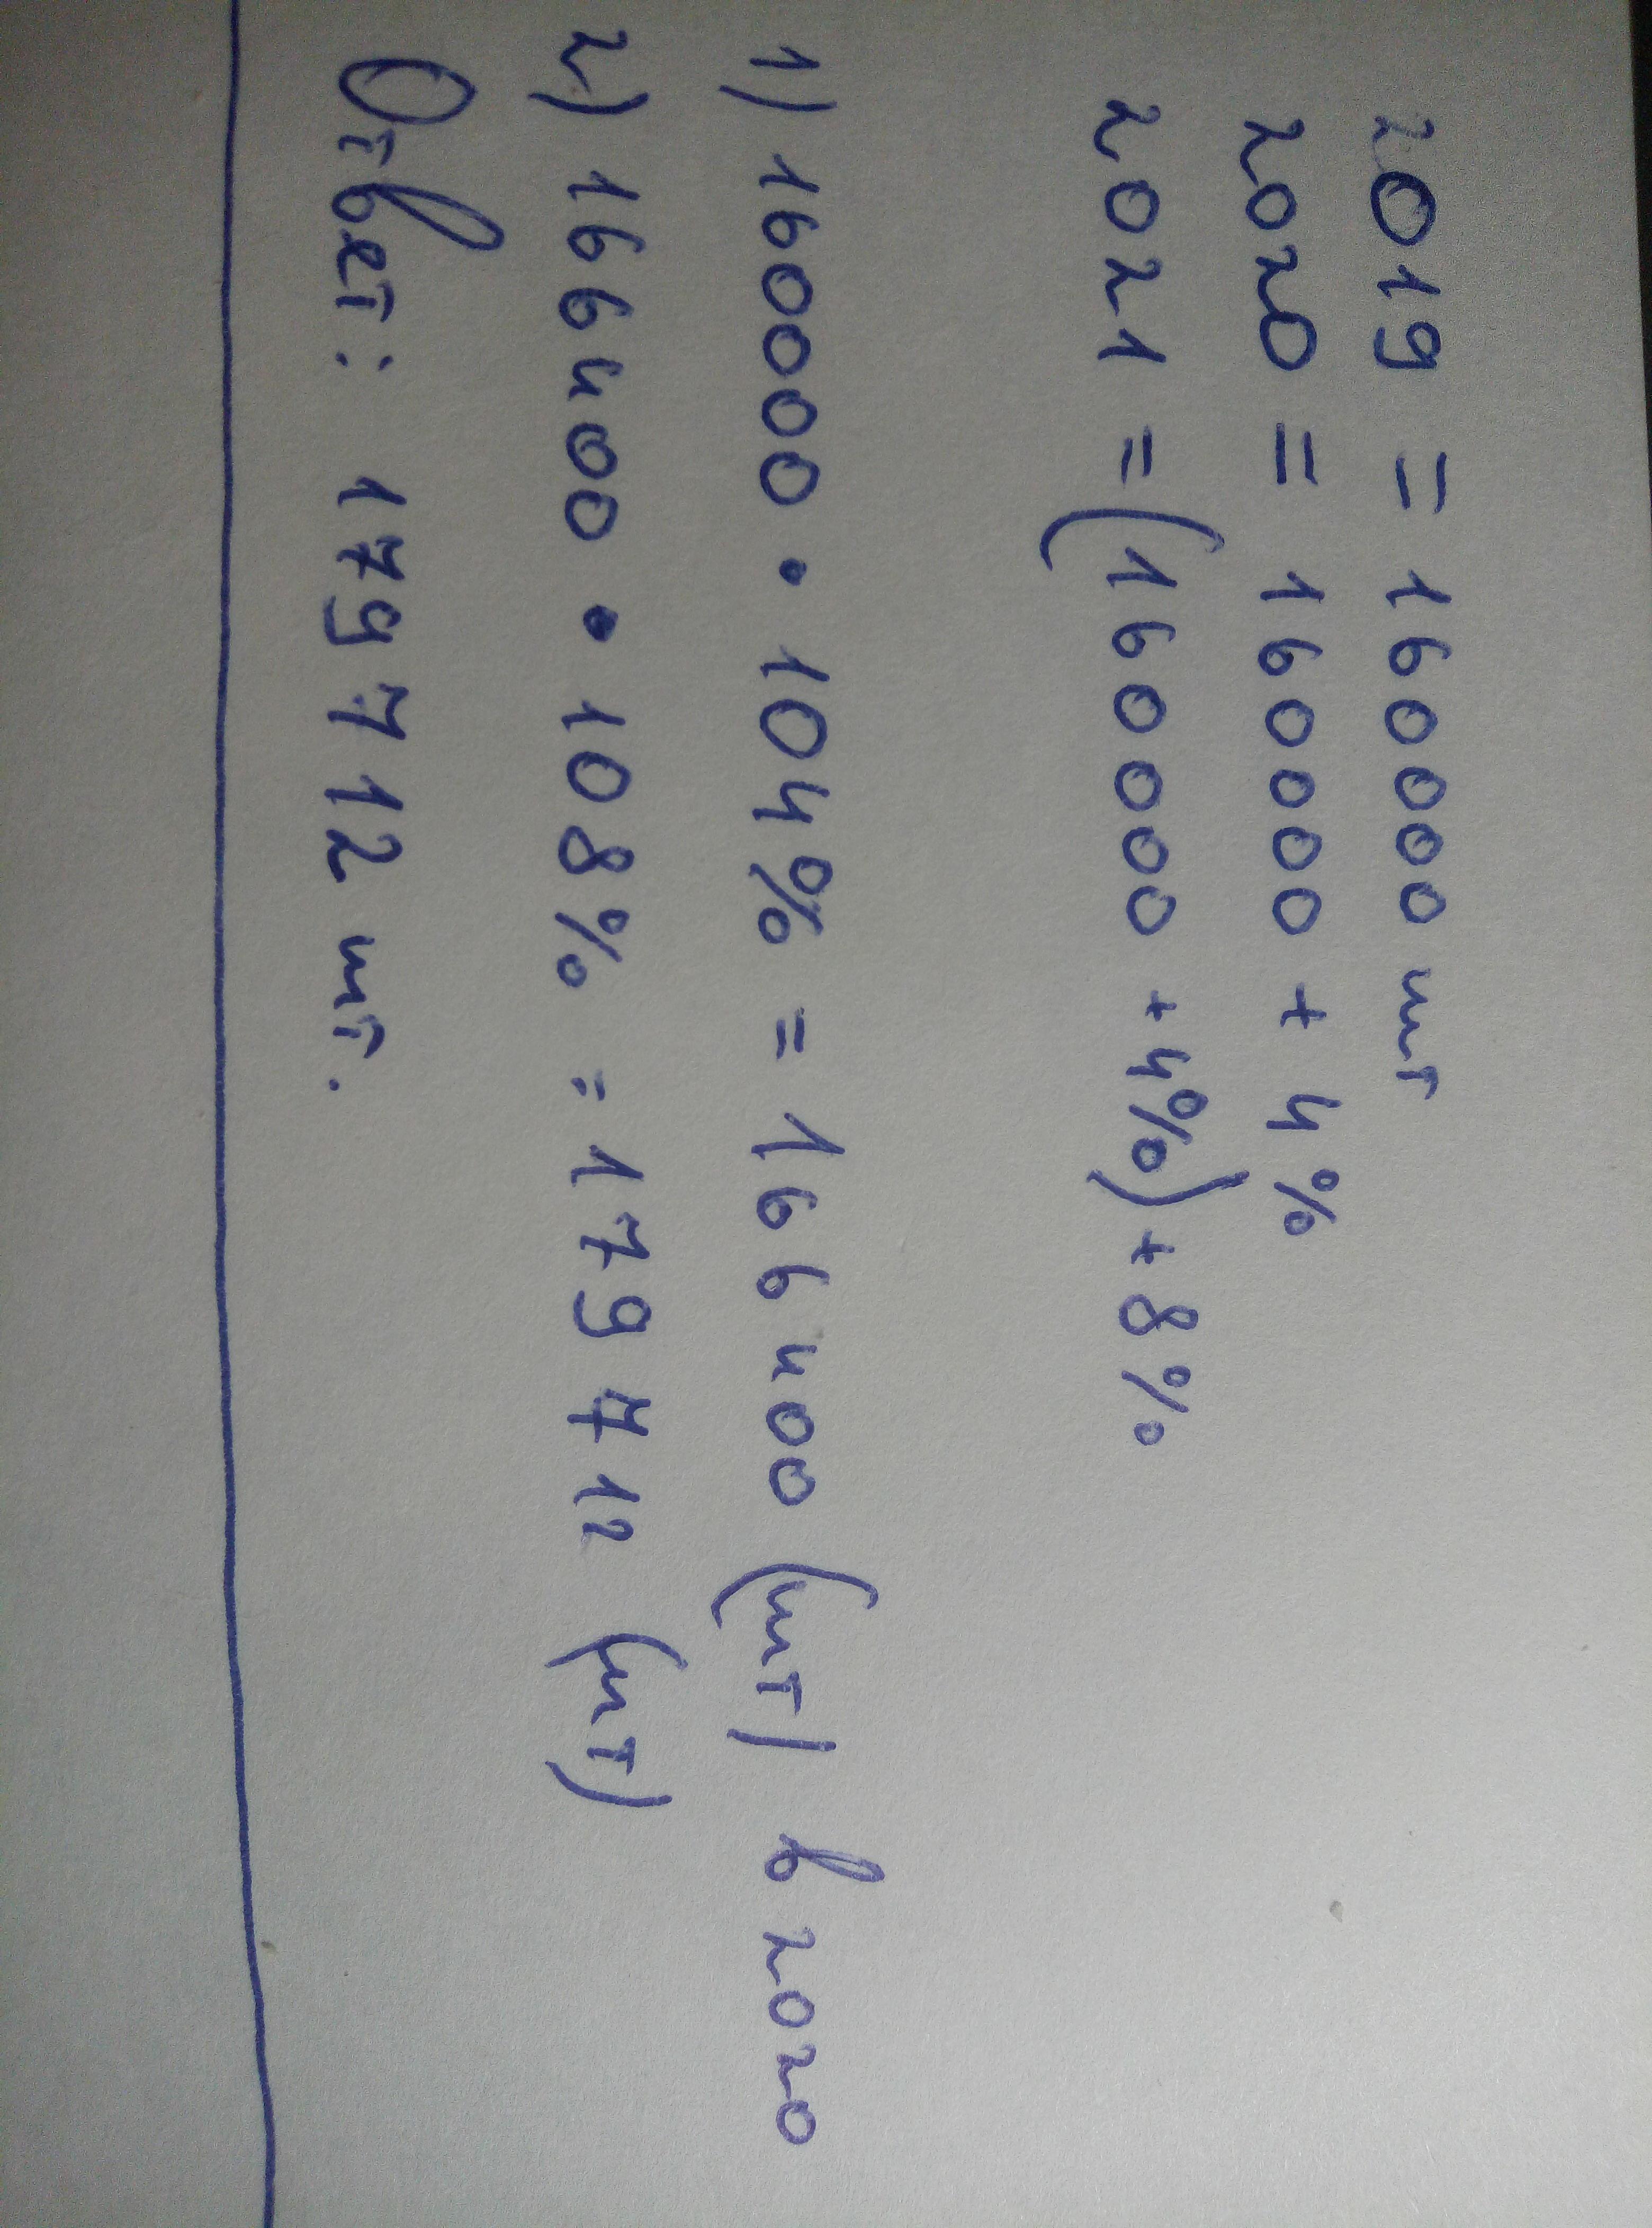 2019 = 160000 шт
2020 = 160000 + 4%
2021 = (160000 + 4%) + 8%
1) 160000 • 104% = 166400 (шт) в 2020
2) 166400 • 108% = 179712 (шт)
Ответ: 179712 шт.